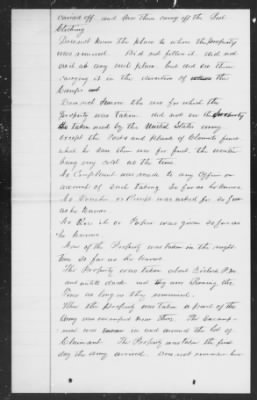 carried off and saw them carry off the
Clothing
Does not know the place to where the property
was removed. Did not follow it did not
visit at any such place but did see them
carrying it in the direction of the
Camps
Does not know the use for which the
property was taken did not see the property
taken used by the United States army
except the Posts and plank of Claimants fence
which he saw them use for fuel, the weather
being very cold at the time
No Complaint was made to any Officer on
account of such taking so far as he knows.
No Voucher or Receipt was asked for so far
as he knows.
No or Paper was given so far as
he knows.
None of the Property was taken in the night
time so far as he knows
The Property was taken about
and until dark and they were burning the
Fence as long as they remained.
When the property was taken a part of the
Army was encamped near there. The Encamp-
ment was in and around the lot of
Claimant. The Property was taken the first
day the army arrived. Does not remember how